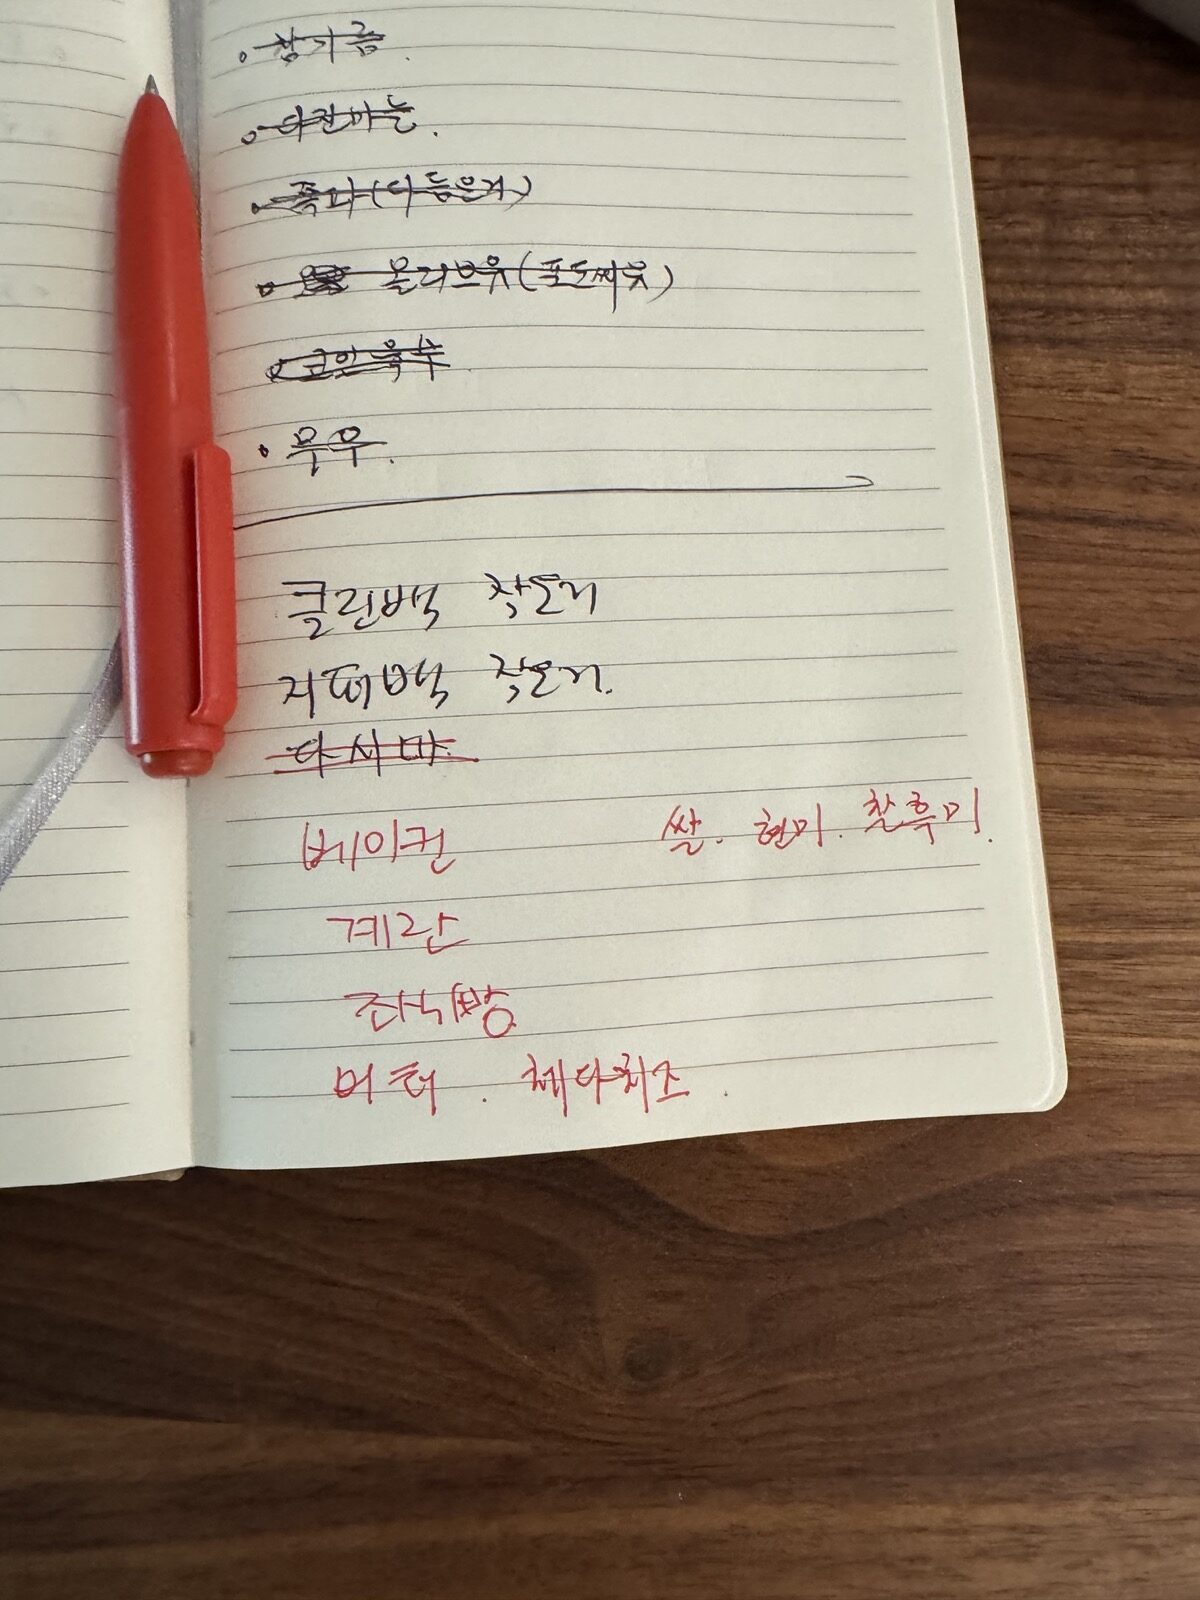 참기름.
다진마늘.
쪽파(다듬은거)
올리브유(포도씨유)
코인육수
우유.
클린백 작은거
지퍼백 작은거.
다시마
베이컨
쌀. 현미. 찰흑미.
계란
모닝빵
버터. 체다치즈.